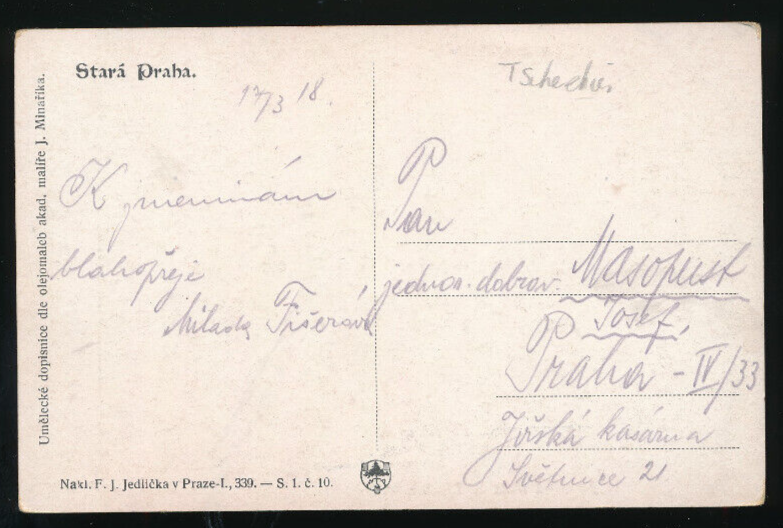 Stará Praha.
17/3 18.
Tschechei
K jmeninám
blahopřeje
Milada Fišerová
Pan
jednor. dobrov. Masopust
Josef,
Praha - IV/33
Jiřská kasárna
Světnice 21
Umělecké dopisnice dle olejomaleb akad. malíře J. Minaříka.
Nakl. F. J. Jedlička v Praze-I., 339. — S. 1. č. 10.